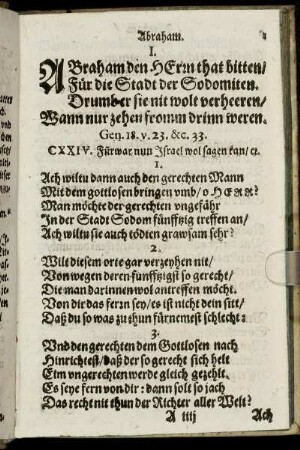 Abraham.
I.
ABraham den HErrn that bitten/
Für die Stadt der Sodomiten.
Drumb er sie nit wolt verheeren/
Wann nur zehen fromm drinn weren.
Gen. 18. v. 23. &c. 33.
CXXIV. Fürwar nun Israel wol sagen kan/ ꝛc.
1.
Ach wiltu dann auch den gerechten Mann
Mit dem gottlosen bringen vmb/ o HERR?
Man möcht der gerechten vngefähr
In der Stadt Sodom fünfftzig treffen an/
Ach wiltu sie auch tödten grawsam sehr?
2.
Wilt diesem orte gar verzeyhen nit/
Von wegen deren funfftzigst so gerecht/
Die man darinnen wol antreffen möcht.
Von dir das ferrn sey/ es ist nicht dein sitt/
Daß du so was zu thun fürnemest schlecht:
3.
Vnd den gerechten dem Gottlosen nach
Hinrichtest/ daß der so gerecht sich helt
Eim vngerechten werde gleich gezehlt.
Es seye fern von dir: dann solt so jach
Das recht nit thun der Richter aller Welt?
A iiij
Ach